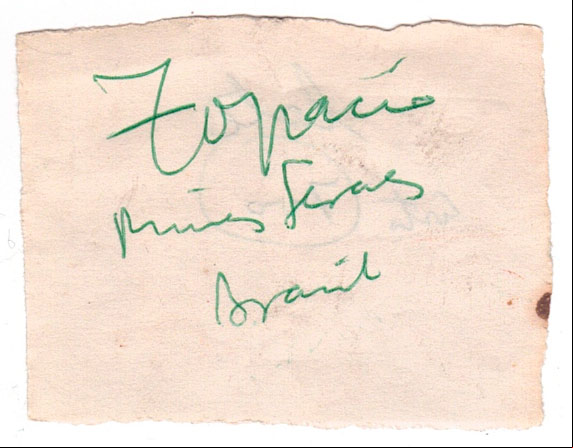 Topacio
Minas Geraes
Brasil